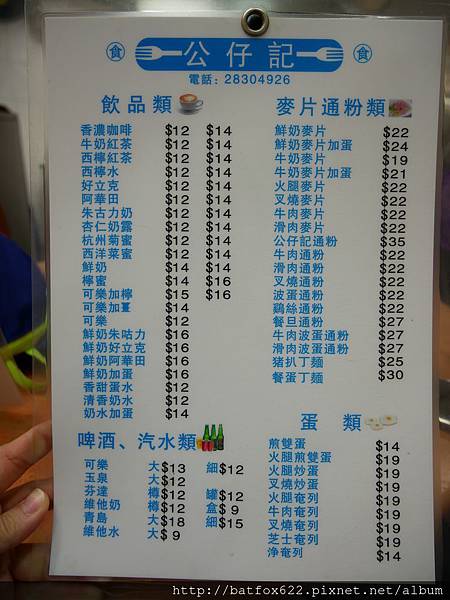 食 公仔記 食
電話: 28304926
飲品類
香濃咖啡 $12 $14
牛奶紅茶 $12 $14
西檸紅茶 $12 $14
西檸水 $12 $14
好立克 $12 $14
阿華田 $12 $14
朱古力奶 $12 $14
杏仁奶露 $12 $14
杭州菊蜜 $12 $14
西洋菜蜜 $12 $14
鮮奶 $14 $14
檸蜜 $14 $16
可樂加檸 $15 $16
可樂加薑 $14
可樂 $12
鮮奶朱咕力 $16
鮮奶好立克 $16
鮮奶阿華田 $16
鮮奶加蛋 $16
香甜蛋水 $12
清香奶水 $12
奶水加蛋 $14
啤酒、汽水類
可樂 大$13 細$12
玉泉 大$12
芬達 樽$12 罐$12
維他奶 樽$12 盒$ 9
青島 大$18 細$15
維他水 大$ 9
麥片通粉類
鮮奶麥片 $22
鮮奶麥片加蛋 $24
牛奶麥片 $19
牛奶麥片加蛋 $21
火腿麥片 $22
叉燒麥片 $22
牛肉麥片 $22
滑肉麥片 $22
公仔記通粉 $35
牛肉通粉 $22
滑肉通粉 $22
叉燒通粉 $22
波蛋通粉 $22
鷄絲通粉 $22
餐旦通粉 $27
牛肉波蛋通粉 $27
滑肉波蛋通粉 $27
猪扒丁麵 $25
餐蛋丁麵 $30
蛋類
煎雙蛋 $14
火腿煎雙蛋 $19
火腿炒蛋 $19
叉燒炒蛋 $19
火腿奄列 $19
牛肉奄列 $19
叉燒奄列 $19
芝士奄列 $19
净奄列 $14
http://batfox622.pixnet.net/album